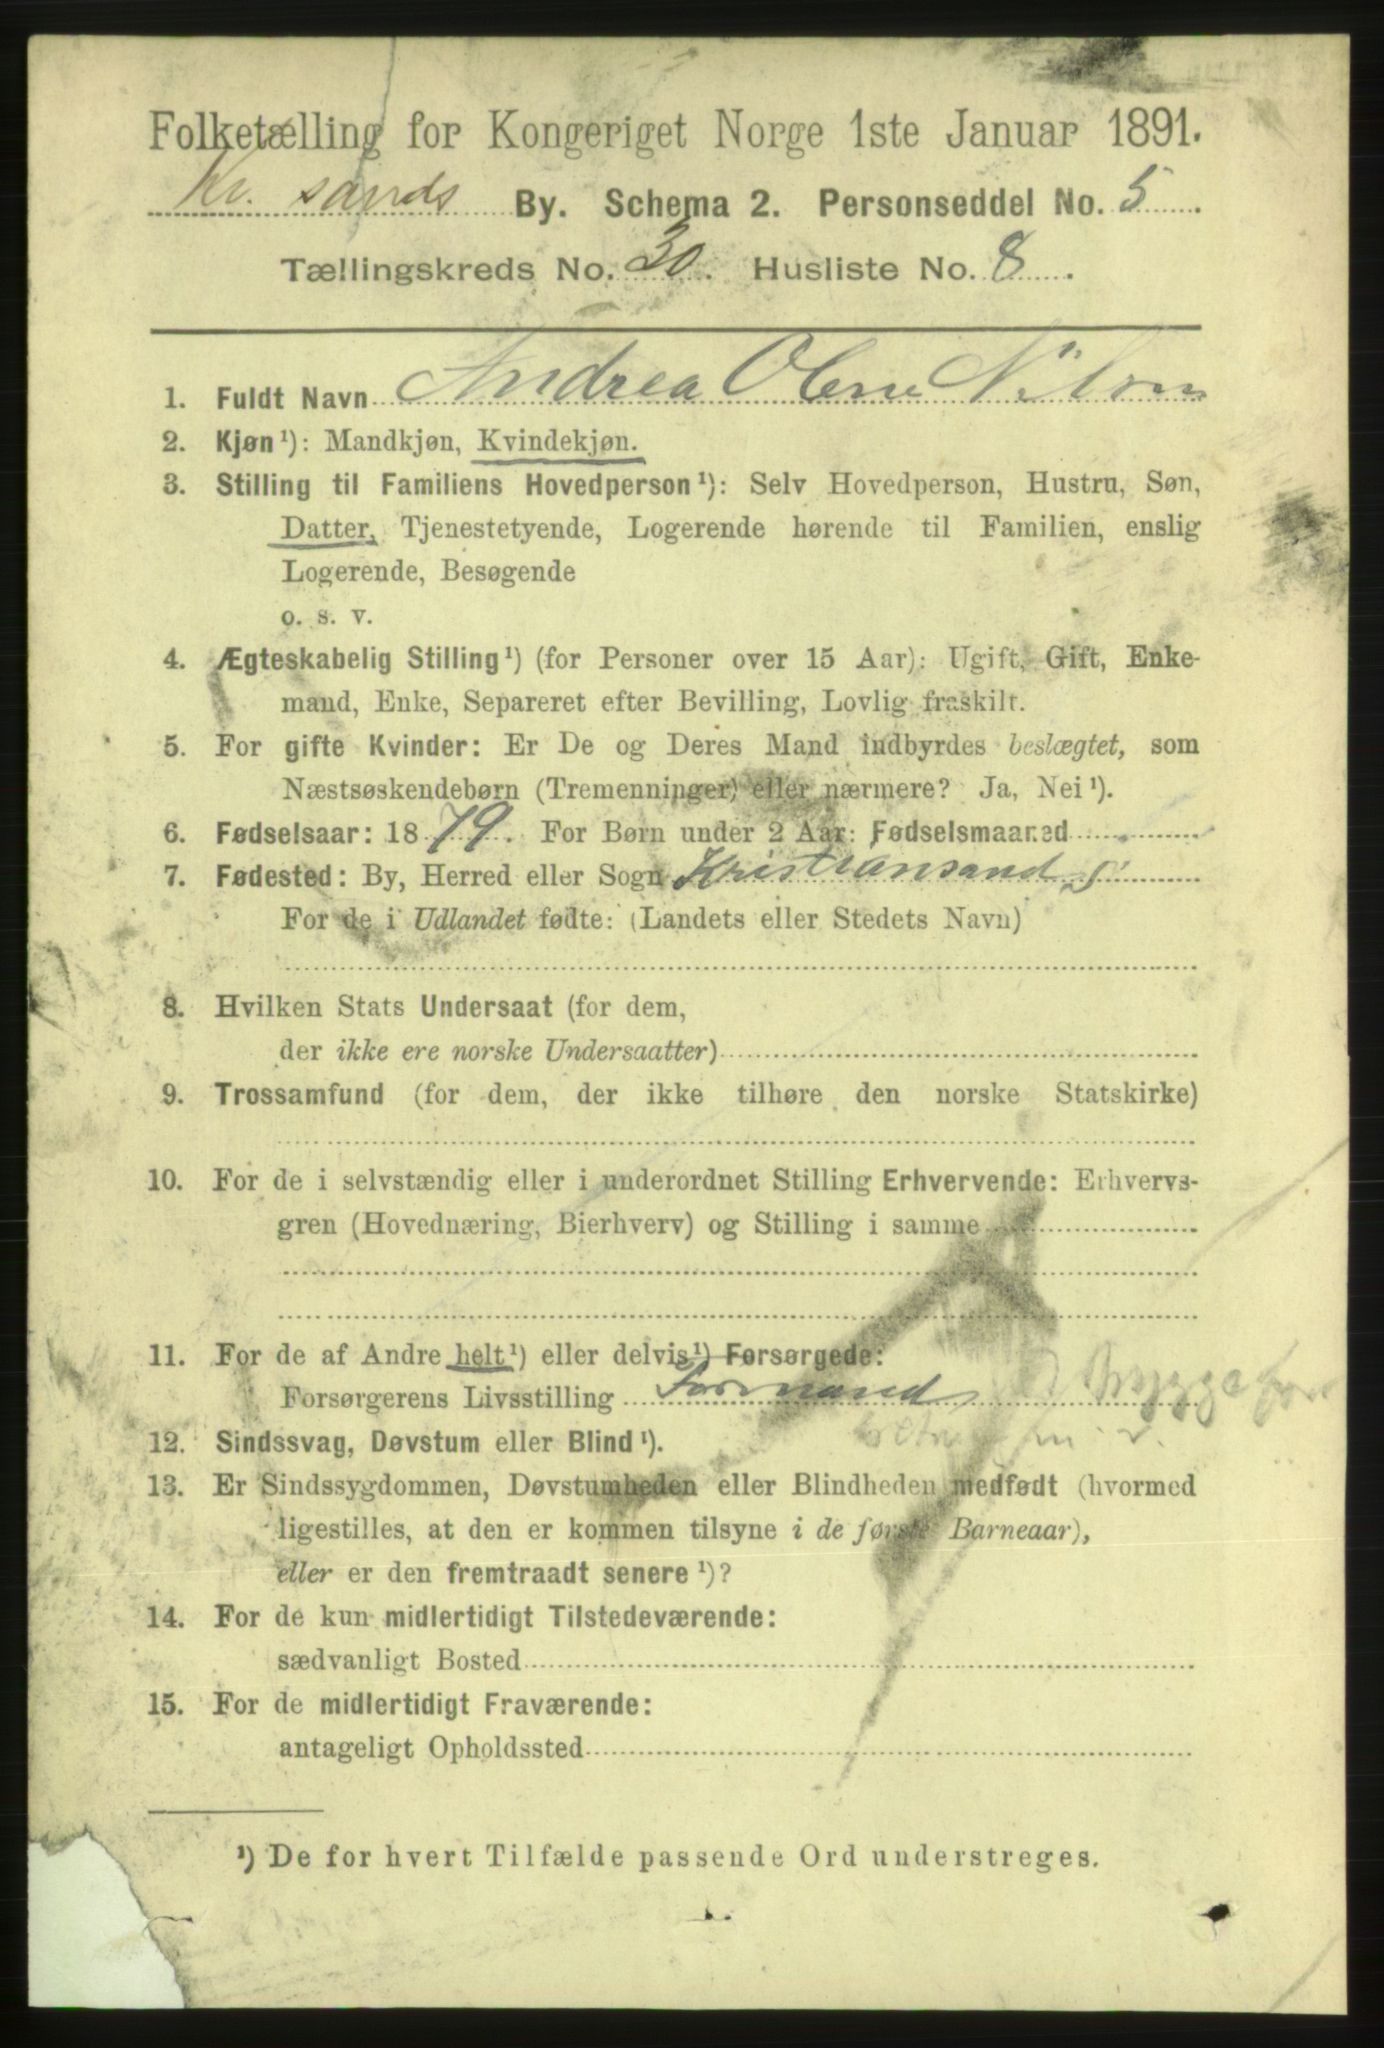 Folketælling for Kongeriget Norge 1ste Januar 1891.
Kr. sands By. Schema 2. Personseddel No. 5
Tællingskreds No. 30. Husliste No. 8.
1. Fuldt Navn Andrea Oline Nilsen
2. Kjøn ¹): Mandkjøn, Kvindekjøn.
3. Stilling til Familiens Hovedperson ¹): Selv Hovedperson, Hustru, Søn,
Datter, Tjenestetyende, Logerende hørende til Familien, enslig
Logerende, Besøgende
o. s. v.
4. Ægteskabelig Stilling ¹) (for Personer over 15 Aar): Ugift, Gift, Enke-
mand, Enke, Separeret efter Bevilling, Lovlig fraskilt.
5. For gifte Kvinder: Er De og Deres Mand indbyrdes beslægtet, som
Næstsøskendebørn (Tremenninger) eller nærmere? Ja, Nei ¹).
6. Fødselsaar: 1879. For Børn under 2 Aar: Fødselsmaaned
7. Fødested: By, Herred eller Sogn Kristiansand S
For de i Udlandet fødte: (Landets eller Stedets Navn)
8. Hvilken Stats Undersaat (for dem,
der ikke ere norske Undersaatter)
9. Trossamfund (for dem, der ikke tilhøre den norske Statskirke)
10. For de i selvstændig eller i underordnet Stilling Erhvervende: Erhvervs-
gren (Hovednæring, Bierhverv) og Stilling i samme
11. For de af Andre helt ¹) eller delvis ¹) Forsørgede:
Forsørgerens Livsstilling Formand
12. Sindssvag, Døvstum eller Blind ¹).
13. Er Sindssygdommen, Døvstumheden eller Blindheden medfødt (hvormed
ligestilles, at den er kommen tilsyne i de første Barneaar),
eller er den fremtraadt senere ¹)?
14. For de kun midlertidigt Tilstedeværende:
sædvanligt Bosted
15. For de midlertidigt Fraværende:
antageligt Opholdssted
¹) De for hvert Tilfælde passende Ord understreges.